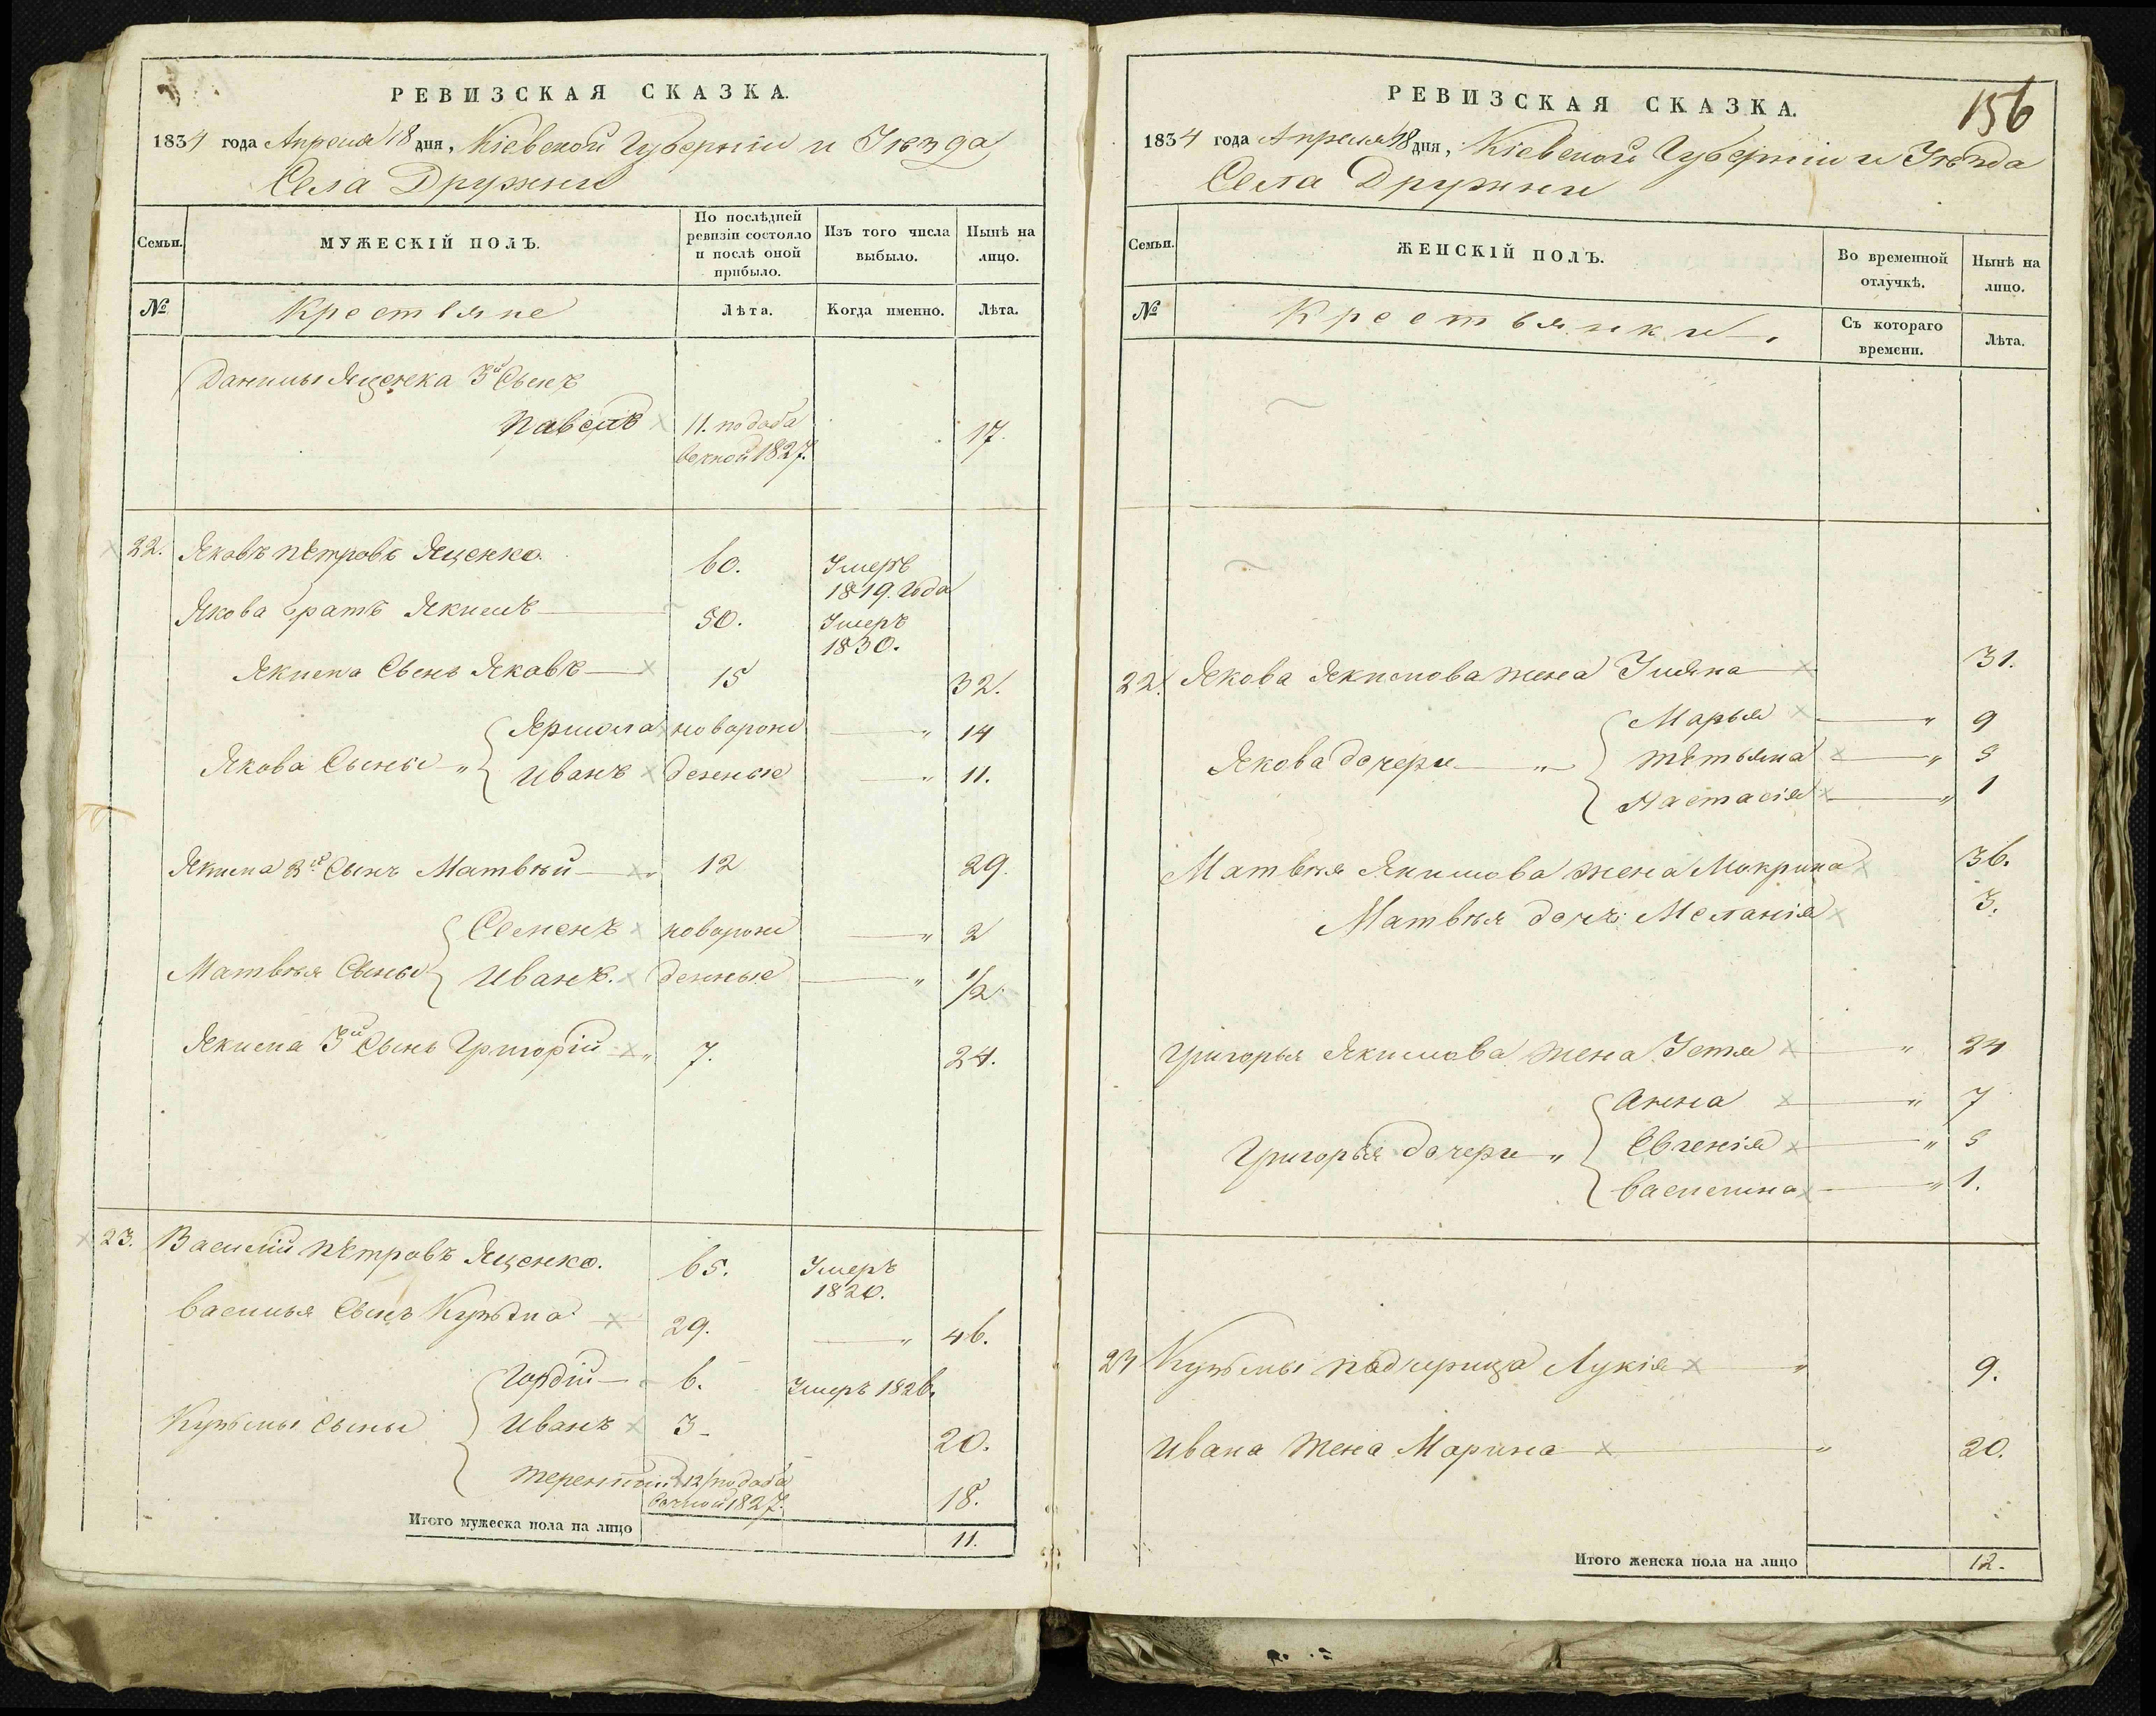 РЕВИЗСКАЯ СКАЗКА.
1834 года Апреля 18 дня, Кіевской Губерніи и Уѣзда
Села Дружни
Семьи.
МУЖЕСКІЙ ПОЛЪ.
По послѣдней ревизіи состояло и послѣ оной прибыло.
Изъ того числа выбыло.
Нынѣ на лицо.
№
Крестьяне
Лѣта.
Когда именно.
Лѣта.
Данилы Яценка 3й Сынъ
Павелъ 11. по доба 17.
вочной 1827.
22. Яковъ Петровъ Яценко. 60. Умеръ
1819. года
Якова братъ Якимъ 50. Умеръ
1830.
Якима Сынъ Яковъ 15 32.
Якова Сыны Ярмола новорож 14
Иванъ денные 11.
Якима 2й Сынъ Матвѣй 12 29.
Матвѣя Сыны Семенъ новорож 2
Иванъ. денные 1/2
Якима 3й Сынъ Григорій 7. 24.
23. Василій Петровъ Яценко. 65. Умеръ
1820.
Василья Сынъ Кузьма 29. 46.
Кузьмы Сыны Гордій 6. Умеръ 1826.
Иванъ 3 20.
Терентій 12 по доба
вочной 1827. 18.
Итого мужеска пола на лицо 11.
156
РЕВИЗСКАЯ СКАЗКА.
1834 года Апреля 18 дня, Кіевской Губерніи и Уѣзда
Села Дружни
Семьи.
ЖЕНСКІЙ ПОЛЪ.
Во временной отлучкѣ.
Нынѣ на лицо.
№
Крестьянки.
Съ котораго времени.
Лѣта.
22. Якова Якимова жена Уляна 31.
Якова дочери Марья 9
Тетьяна 5
Настасія 1
Матвѣя Якимова жена Макрина 36.
Матвѣя дочь Меланія 3.
Григорья Якимова жена Устя 24
Григорья дочери Анна 7
Евгенія 5
Василина 1.
23 Кузьмы падчерица Лукія 9.
Ивана жена Марина 20.
Итого женска пола на лицо 12.